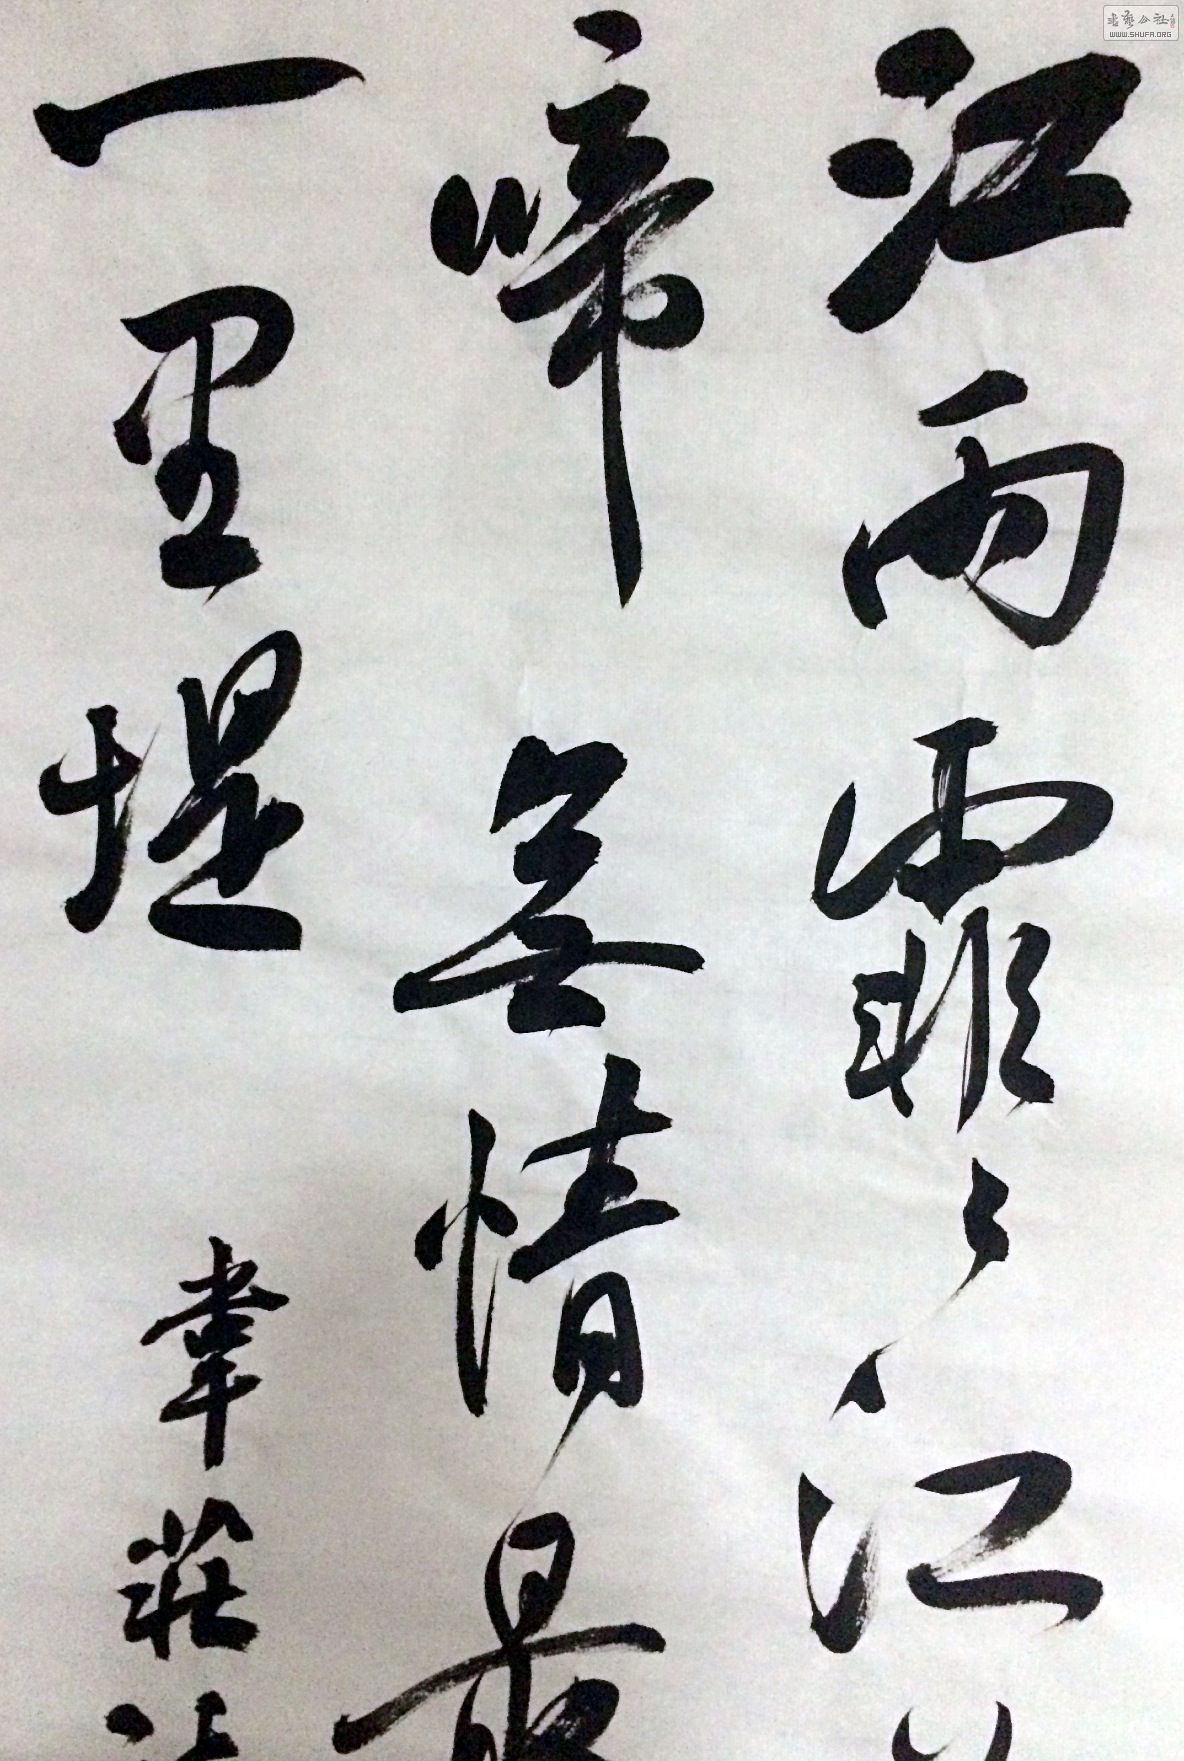 江雨霏々江
啼無情最
一里堤 韋莊
书艺公社
WWW.SHUFA.ORG